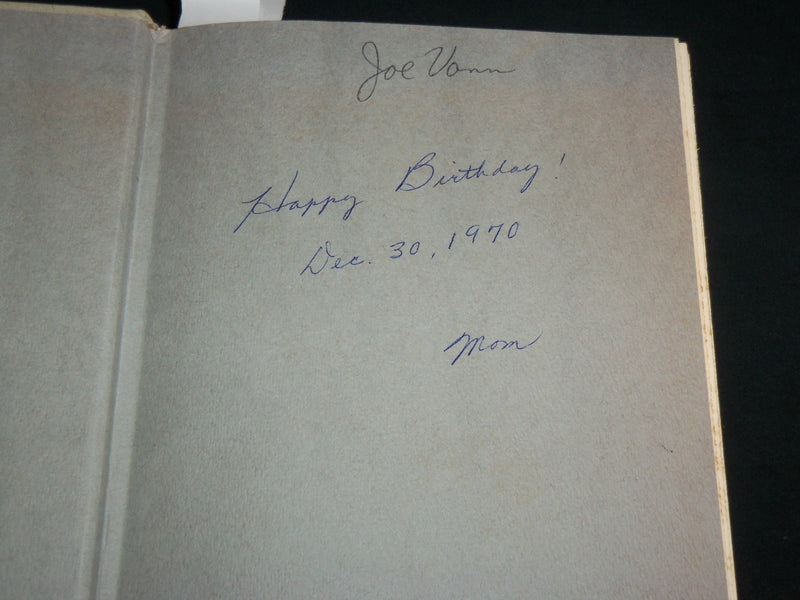 Joe Vann
Happy Birthday!
Dec. 30, 1970
Mom